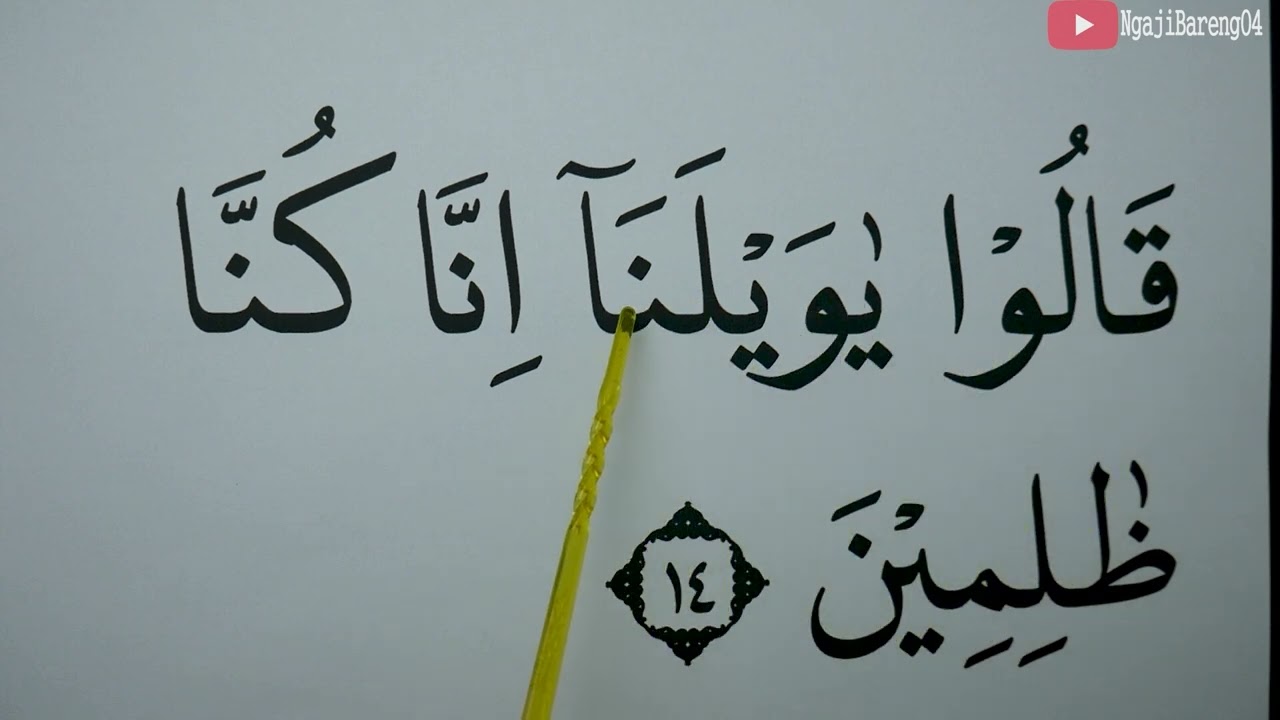 NgajiBareng04
قَالُوْا يٰوَيْلَنَآ اِنَّا كُنَّا
ظٰلِمِيْنَ ١٤